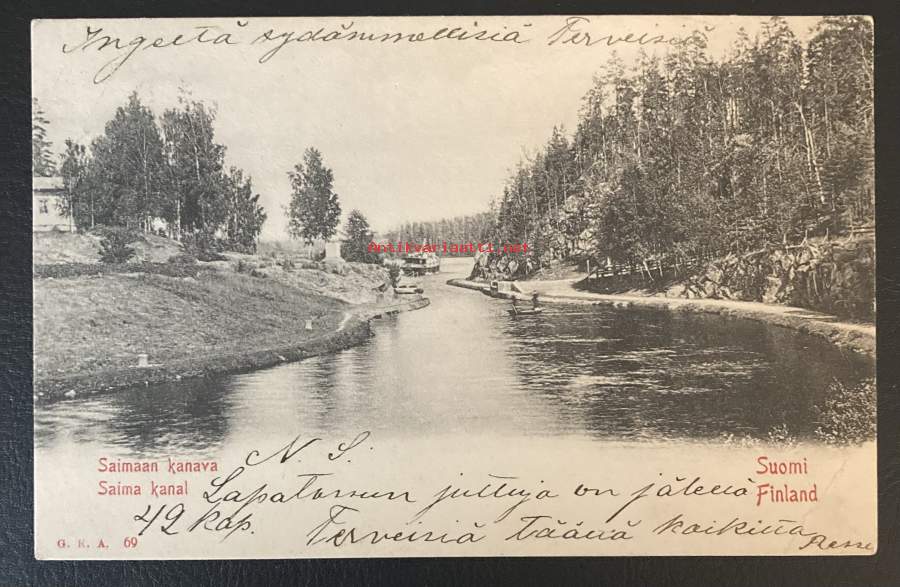 Ingeltä sydämmellisiä Terveisiä
Antikvariaatti.net
Saimaan kanava
Saima kanal
Suomi
Finland
N. S.
Lapatossun juttuja on jälellä
42 kap. Terveisiä täänä kaikilta
G. K. A. 69